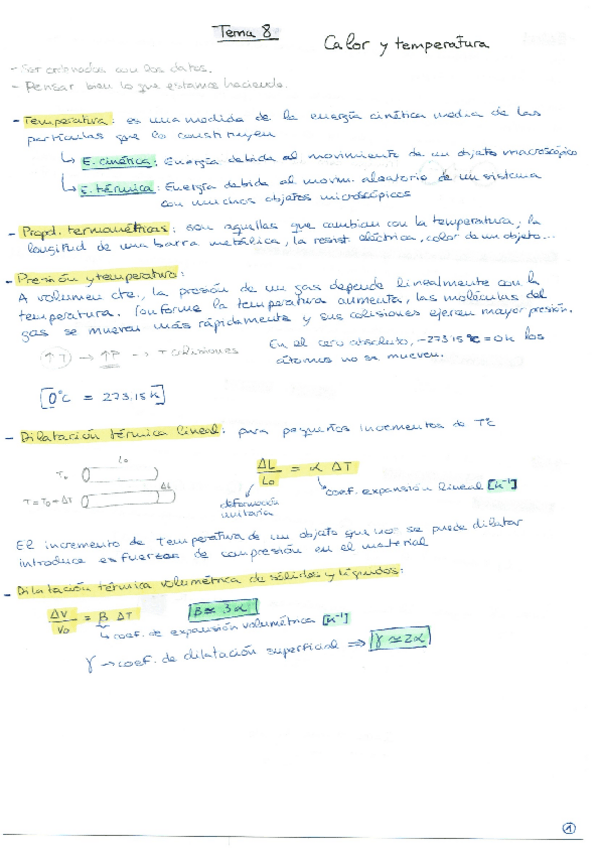 Tema 8
Calor y temperatura
- Ser ordenados con los datos.
- Pensar bien lo que estamos haciendo.
- Temperatura: es una medida de la energía cinética media de las
partículas que lo construyen
↳ E. cinética: Energía debida al movimiento de un objeto macroscópico
↳ E. térmica: Energía debida al movim. aleatorio de un sistema
con muchos objetos microscópicos
- Propd. termométricas: son aquellas que cambian con la temperatura; la
longitud de una barra metálica, la resist. eléctrica, color de un objeto...
- Presión y temperatura:
A volumen cte., la presión de un gas depende linealmente con la
temperatura. Conforme la temperatura aumenta, las moléculas del
gas se mueven más rápidamente y sus colisiones ejercen mayor presión.
↑T → ↑P --> + colisiones
En el cero absoluto, -273'15 ºC = 0K los
átomos no se mueven.
[0ºC = 273,15K]
- Dilatación térmica lineal: para pequeños incrementos de Tª
L₀
T₀
ΔL
T = T₀ + ΔT
ΔL/L₀ = α ΔT
deformación
unitaria
coef. expansión lineal [K⁻¹]
El incremento de temperatura de un objeto que no se puede dilatar
introduce esfuerzos de compresión en el material
- Dilatación térmica volumétrica de sólidos y líquidos:
ΔV/V₀ = β ΔT
β ≃ 3α
↳ coef. de expansión volumétrica [K⁻¹]
γ → coef. de dilatación superficial ⇒ γ ≃ 2α
1